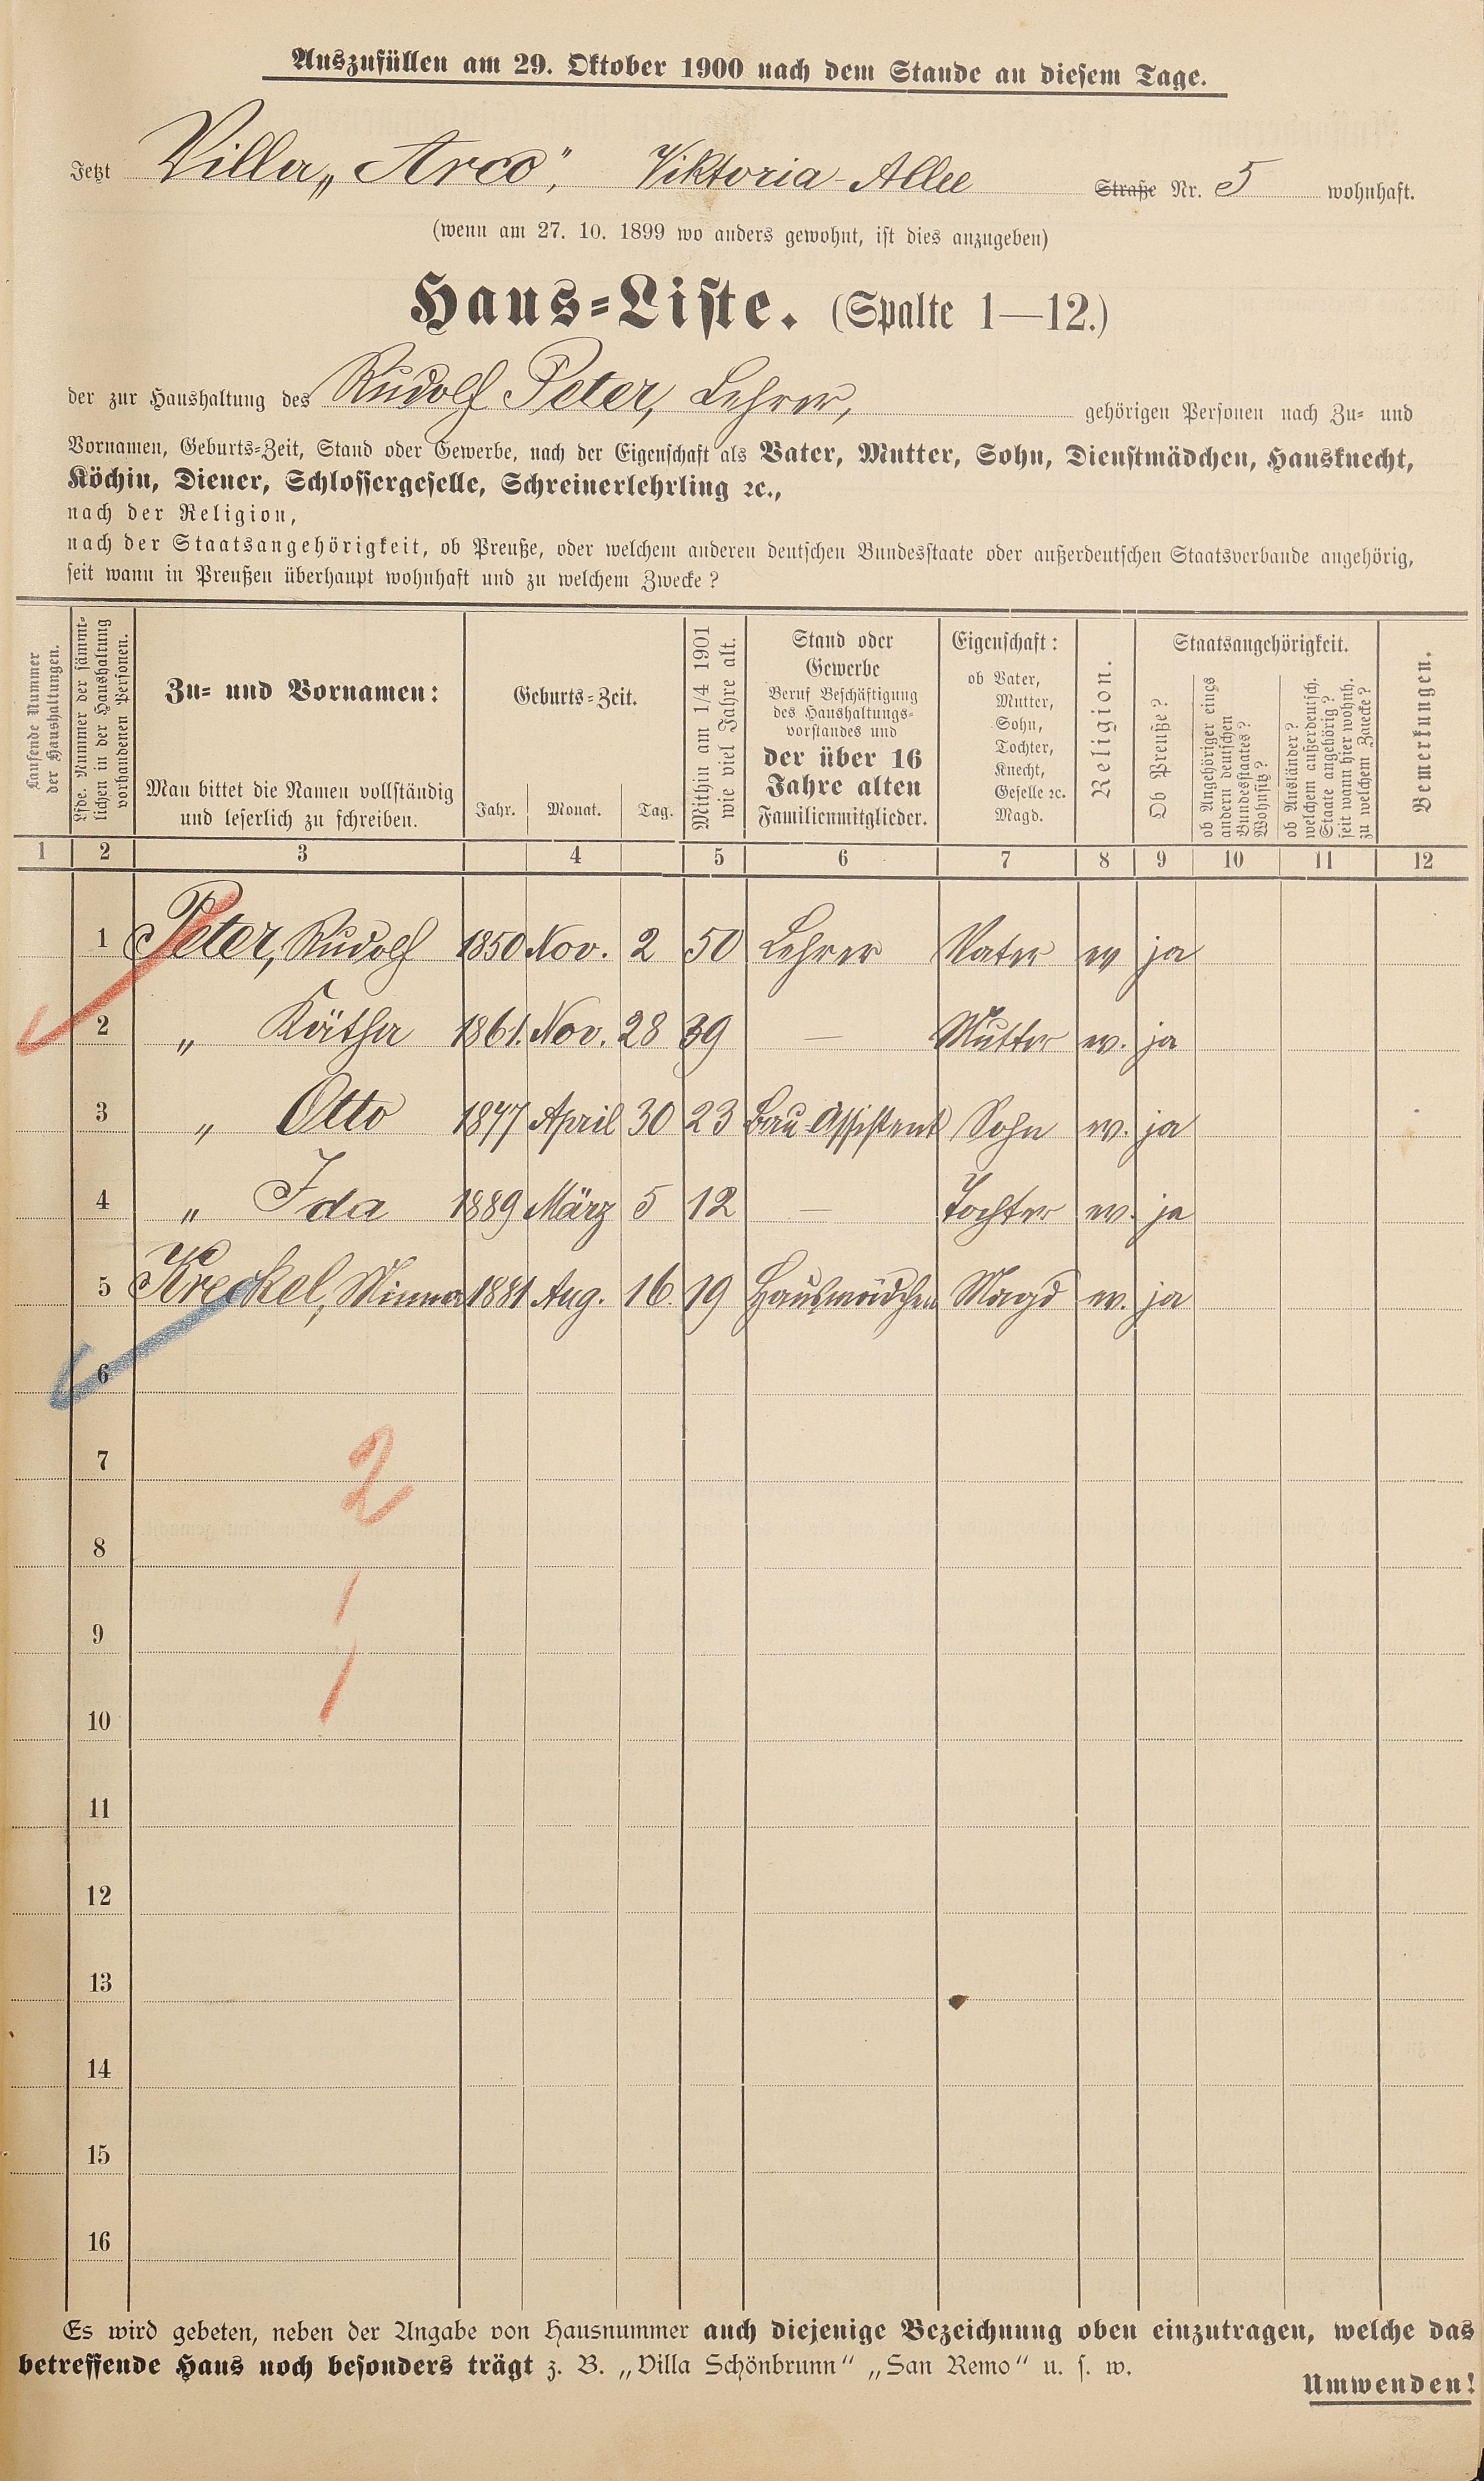 Auszufüllen am 29. Oktober 1900 nach dem Stande an diesem Tage.
Jetzt Villa „Arco", Viktoria-Allee Straße Nr. 5 wohnhaft.
(wenn am 27. 10. 1899 wo anders gewohnt, ist dies anzugeben)
Haus=Liste. (Spalte 1—12.)
der zur Haushaltung des Rudolf Peter, Lehrer, gehörigen Personen nach Zu= und
Vornamen, Geburts=Zeit, Stand oder Gewerbe, nach der Eigenschaft als Vater, Mutter, Sohn, Dienstmädchen, Hausknecht,
Köchin, Diener, Schlossergeselle, Schreinerlehrling ꝛc.,
nach der Religion,
nach der Staatsangehörigkeit, ob Preuße, oder welchem anderen deutschen Bundesstaate oder außerdeutschen Staatsverbande angehörig,
seit wann in Preußen überhaupt wohnhaft und zu welchem Zwecke?
Laufende Nummer
der Haushaltungen.
Lfde. Nummer der sämmt-
lichen in der Haushaltung
vorhandenen Personen.
Zu= und Vornamen:
Man bittet die Namen vollständig
und leserlich zu schreiben.
Geburts=Zeit.
Jahr. Monat. Tag.
Mithin am 1/4 1901
wie viel Jahre alt.
Stand oder
Gewerbe
Beruf Beschäftigung
des Haushaltungs=
vorstandes und
der über 16
Jahre alten
Familienmitglieder.
Eigenschaft:
ob Vater,
Mutter,
Sohn,
Tochter,
Knecht,
Geselle ꝛc.
Magd.
Religion.
Staatsangehörigkeit.
Ob Preuße?
ob Angehöriger eines
andern deutschen
Bundesstaates?
Wohnsitz?
ob Ausländer?
welchem außerdeutsch.
Staate angehörig?
seit wann hier wohnh.
zu welchem Zwecke?
Bemerkungen.
1 2 3 4 5 6 7 8 9 10 11 12
1 Peter, Rudolf 1850 Nov. 2 50 Lehrer Vater ev ja
2 „ Kätha 1861. Nov. 28 39 — Mutter ev. ja
3 „ Otto 1877 April 30 23 Bau-Assistent Sohn ev. ja
4 „ Ida 1889 März 5 12 — Tochter ev. ja
5 Kreckel, Minna 1881 Aug. 16. 19 Hausmädchen Magd ev. ja
6
7
2
8
1
9
1
10
11
12
13
14
15
16
Es wird gebeten, neben der Angabe von Hausnummer auch diejenige Bezeichnung oben einzutragen, welche das
betreffende Haus noch besonders trägt z. B. „Villa Schönbrunn" „San Remo" u. s. w.
Umwenden!